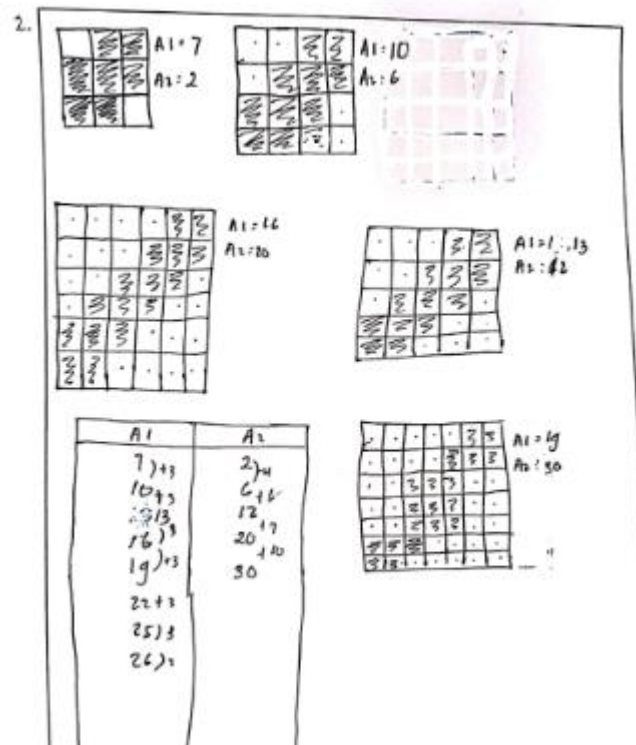 2.
A1:7
A2:2
A1:10
A2:6
A1=16
A2:20
A1=1 13
A2:12
A1=19
A2:30
A1 A2
7)+3 2)+4
10+3 6+6
13 12
16)3 20
19)+3 +10
30
22+3
25)3
26)